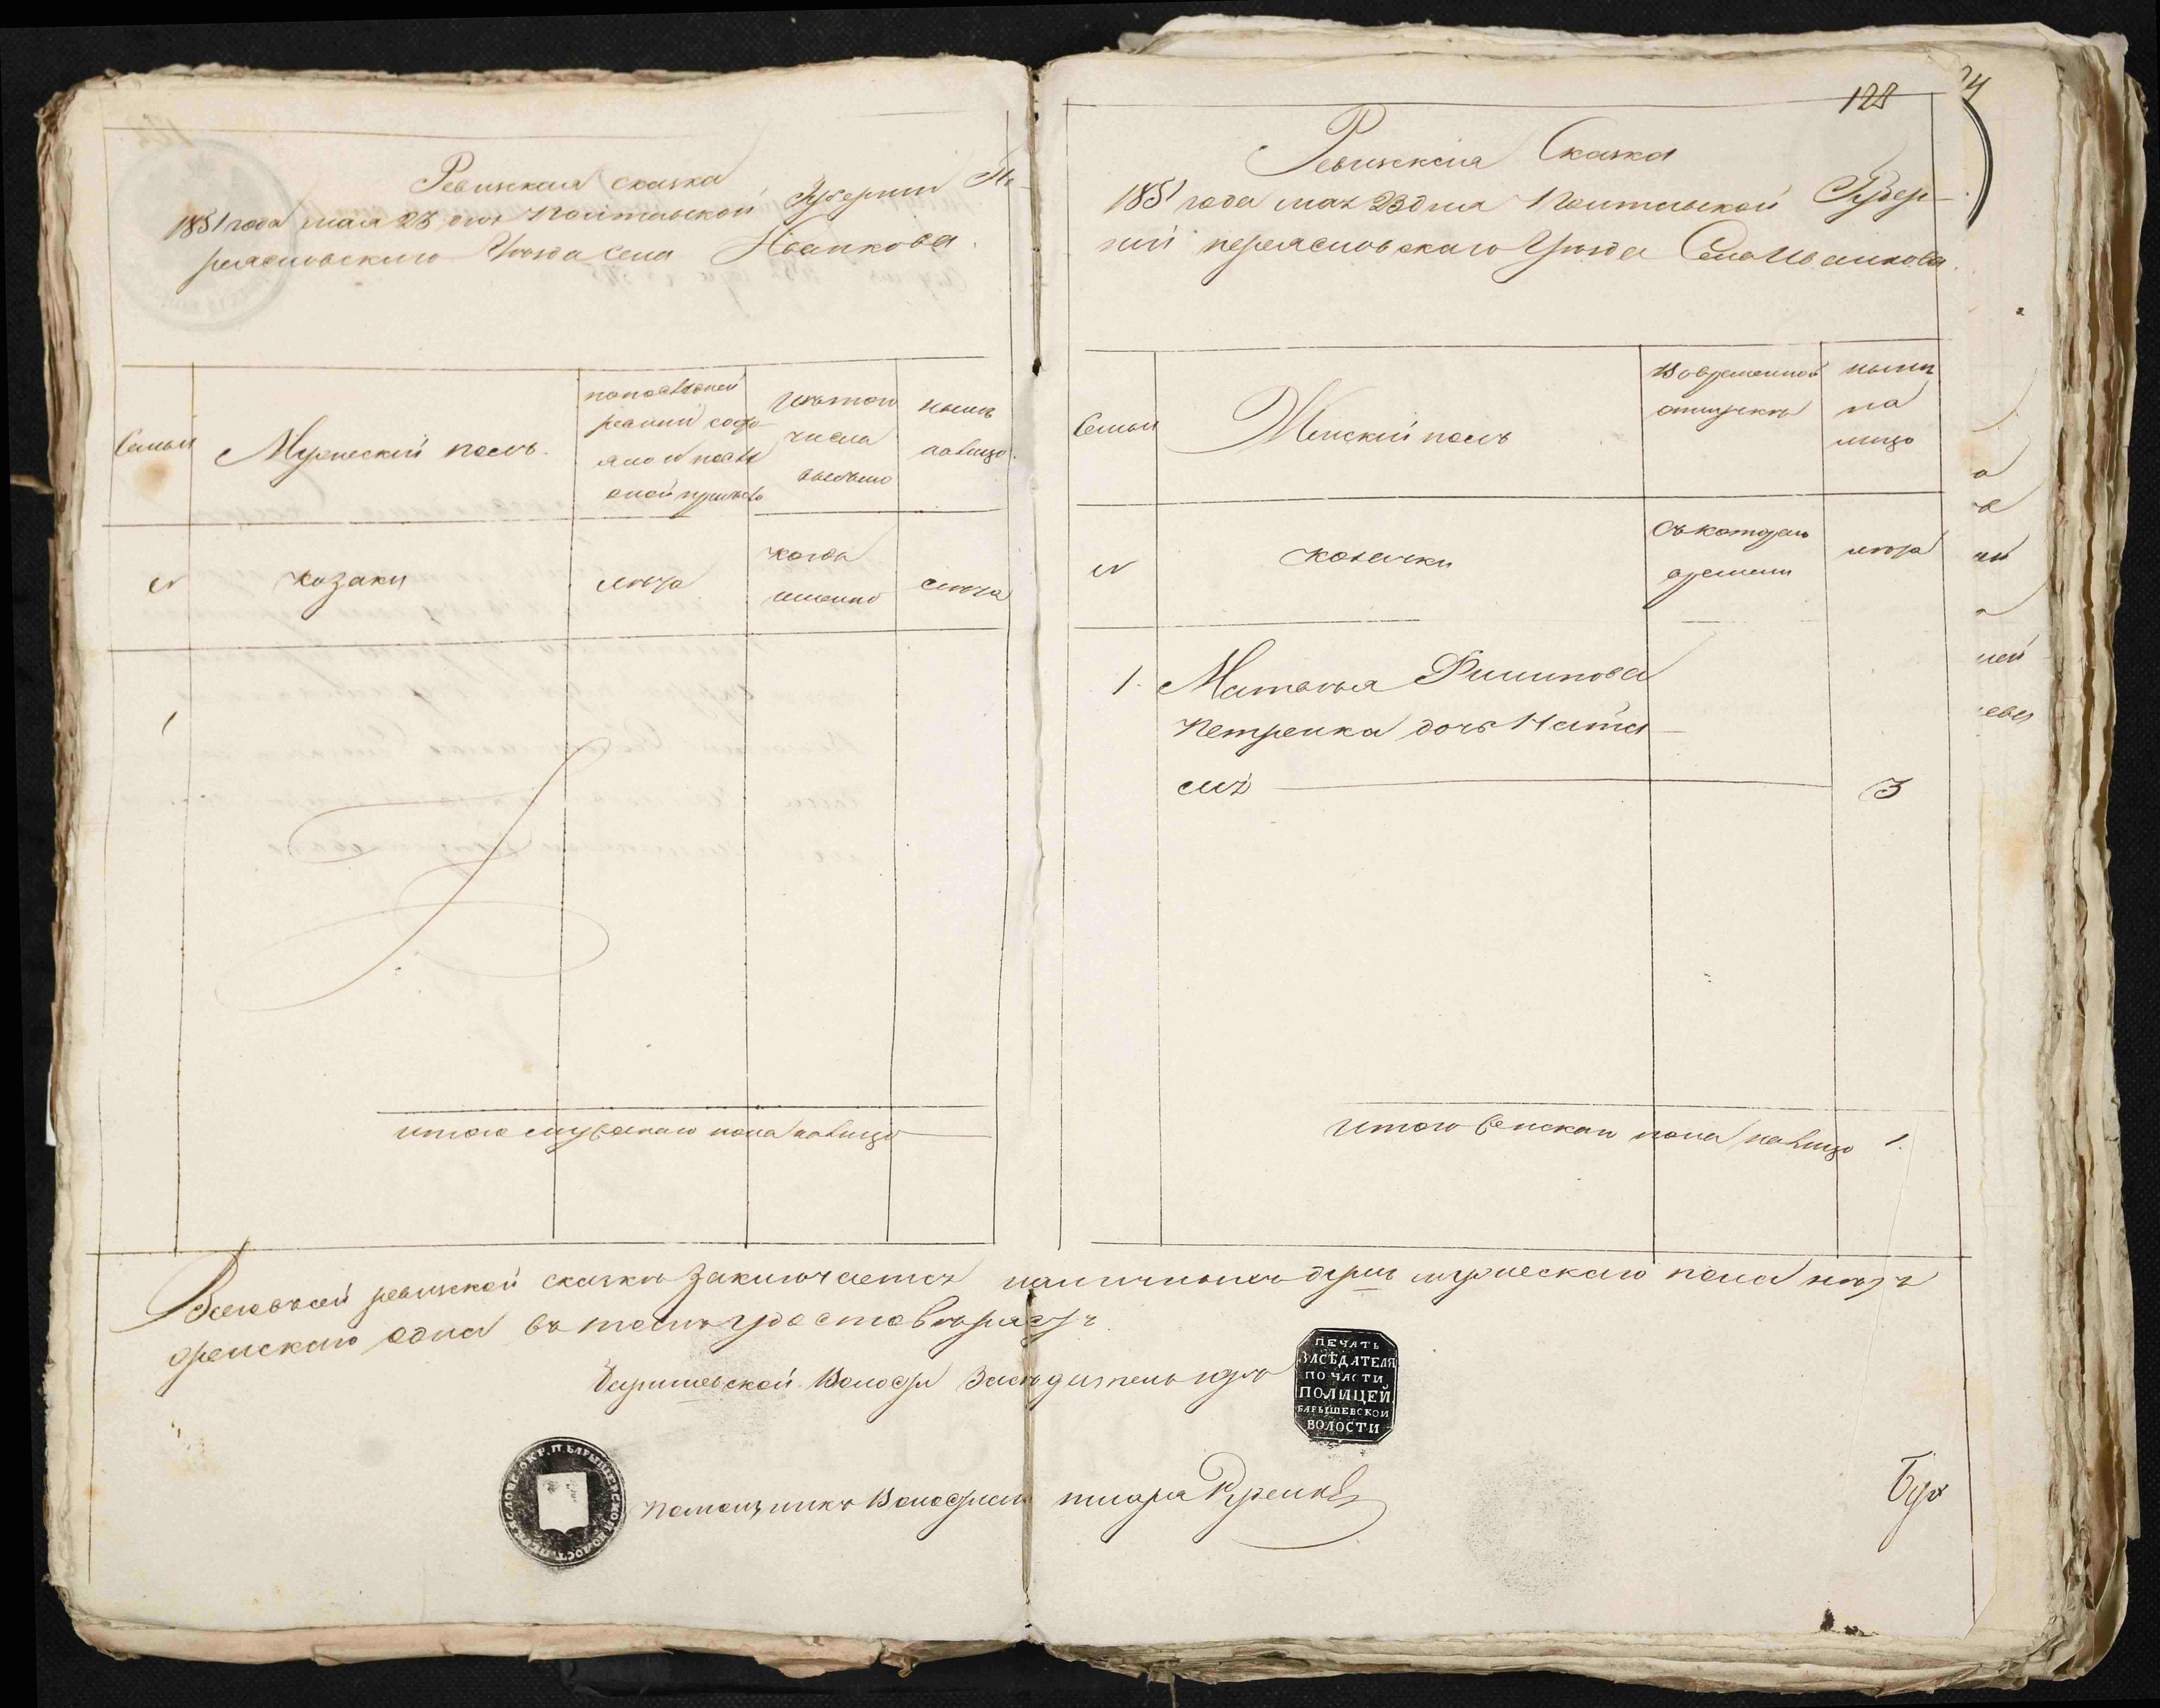 Ревижская сказка
1851 года мая 23 дня Полтавской Губернии Пе-
реясловского Уезда Села Иванкова.
Семьи
Мужеский полъ.
попоследней
ревизии состо
яло и после
оной прибыло
Изътого
числа
выбыло
ныне
налицо.
№
козаки
лета
когда
именно
лета
1
итого мужескаго пола налицо
128
Ревижская Сказка
1851 года мая 23 дня Полтавской Губер-
нии переясловскаго Уезда Села Иванкова.
Семьи
Женский полъ
Вовременной
отлучке
ныне
на
лицо
№
козачки
Съкотораго
времени
лета
1.
Матвея Филипова
Петренка дочь Ната
лия
3
Итого женскаго пола налицо 1.
Всего въсей ревижской сказке заключается наличныхъ душъ мужескаго пола нетъ
женскаго одна въ томъ удостоверяетъ
Барышевской Волости Заседатель
Помощникъ Волостнаго писаря Руденко
ПЕЧАТЬ
ЗАСѢДАТЕЛЯ
ПО ЧАСТИ
ПОЛИЦЕЙ
БАРЫШЕВСКОЙ
ВОЛОСТИ
ПЕРЕЯСЛОВ. ОКР. П. БАРЫШЕВСКОЙ ВОЛОСТ.